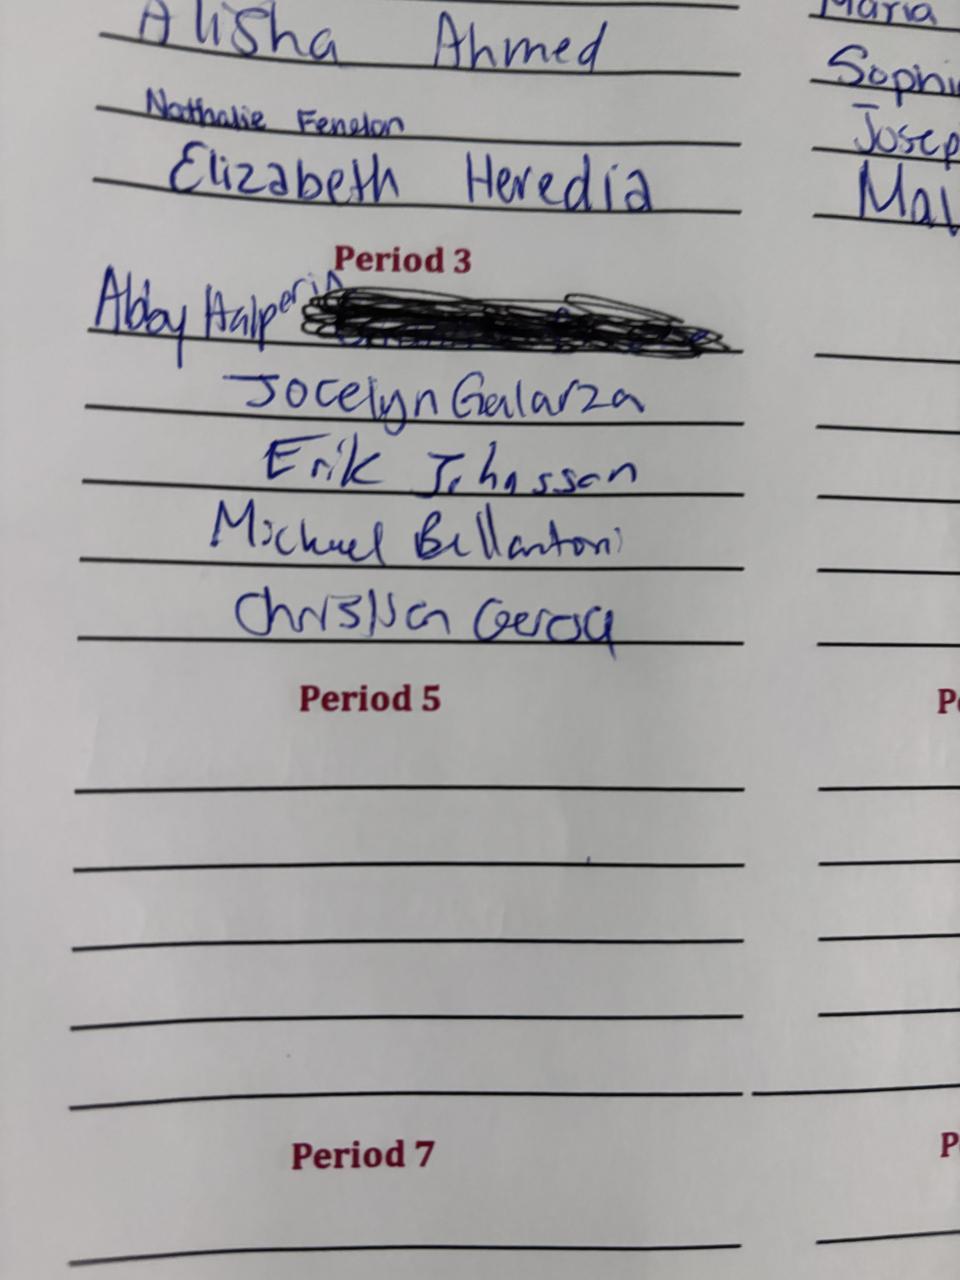 Alisha Ahmed
Nathalie Fenelon
Elizabeth Heredia
Period 3
Abby Halperin
Jocelyn Galarza
Erik
Michael Bellantoni
Christian Gerosa
Period 5
Period 7
Maria
Sophi
Josep
Mal
P
P